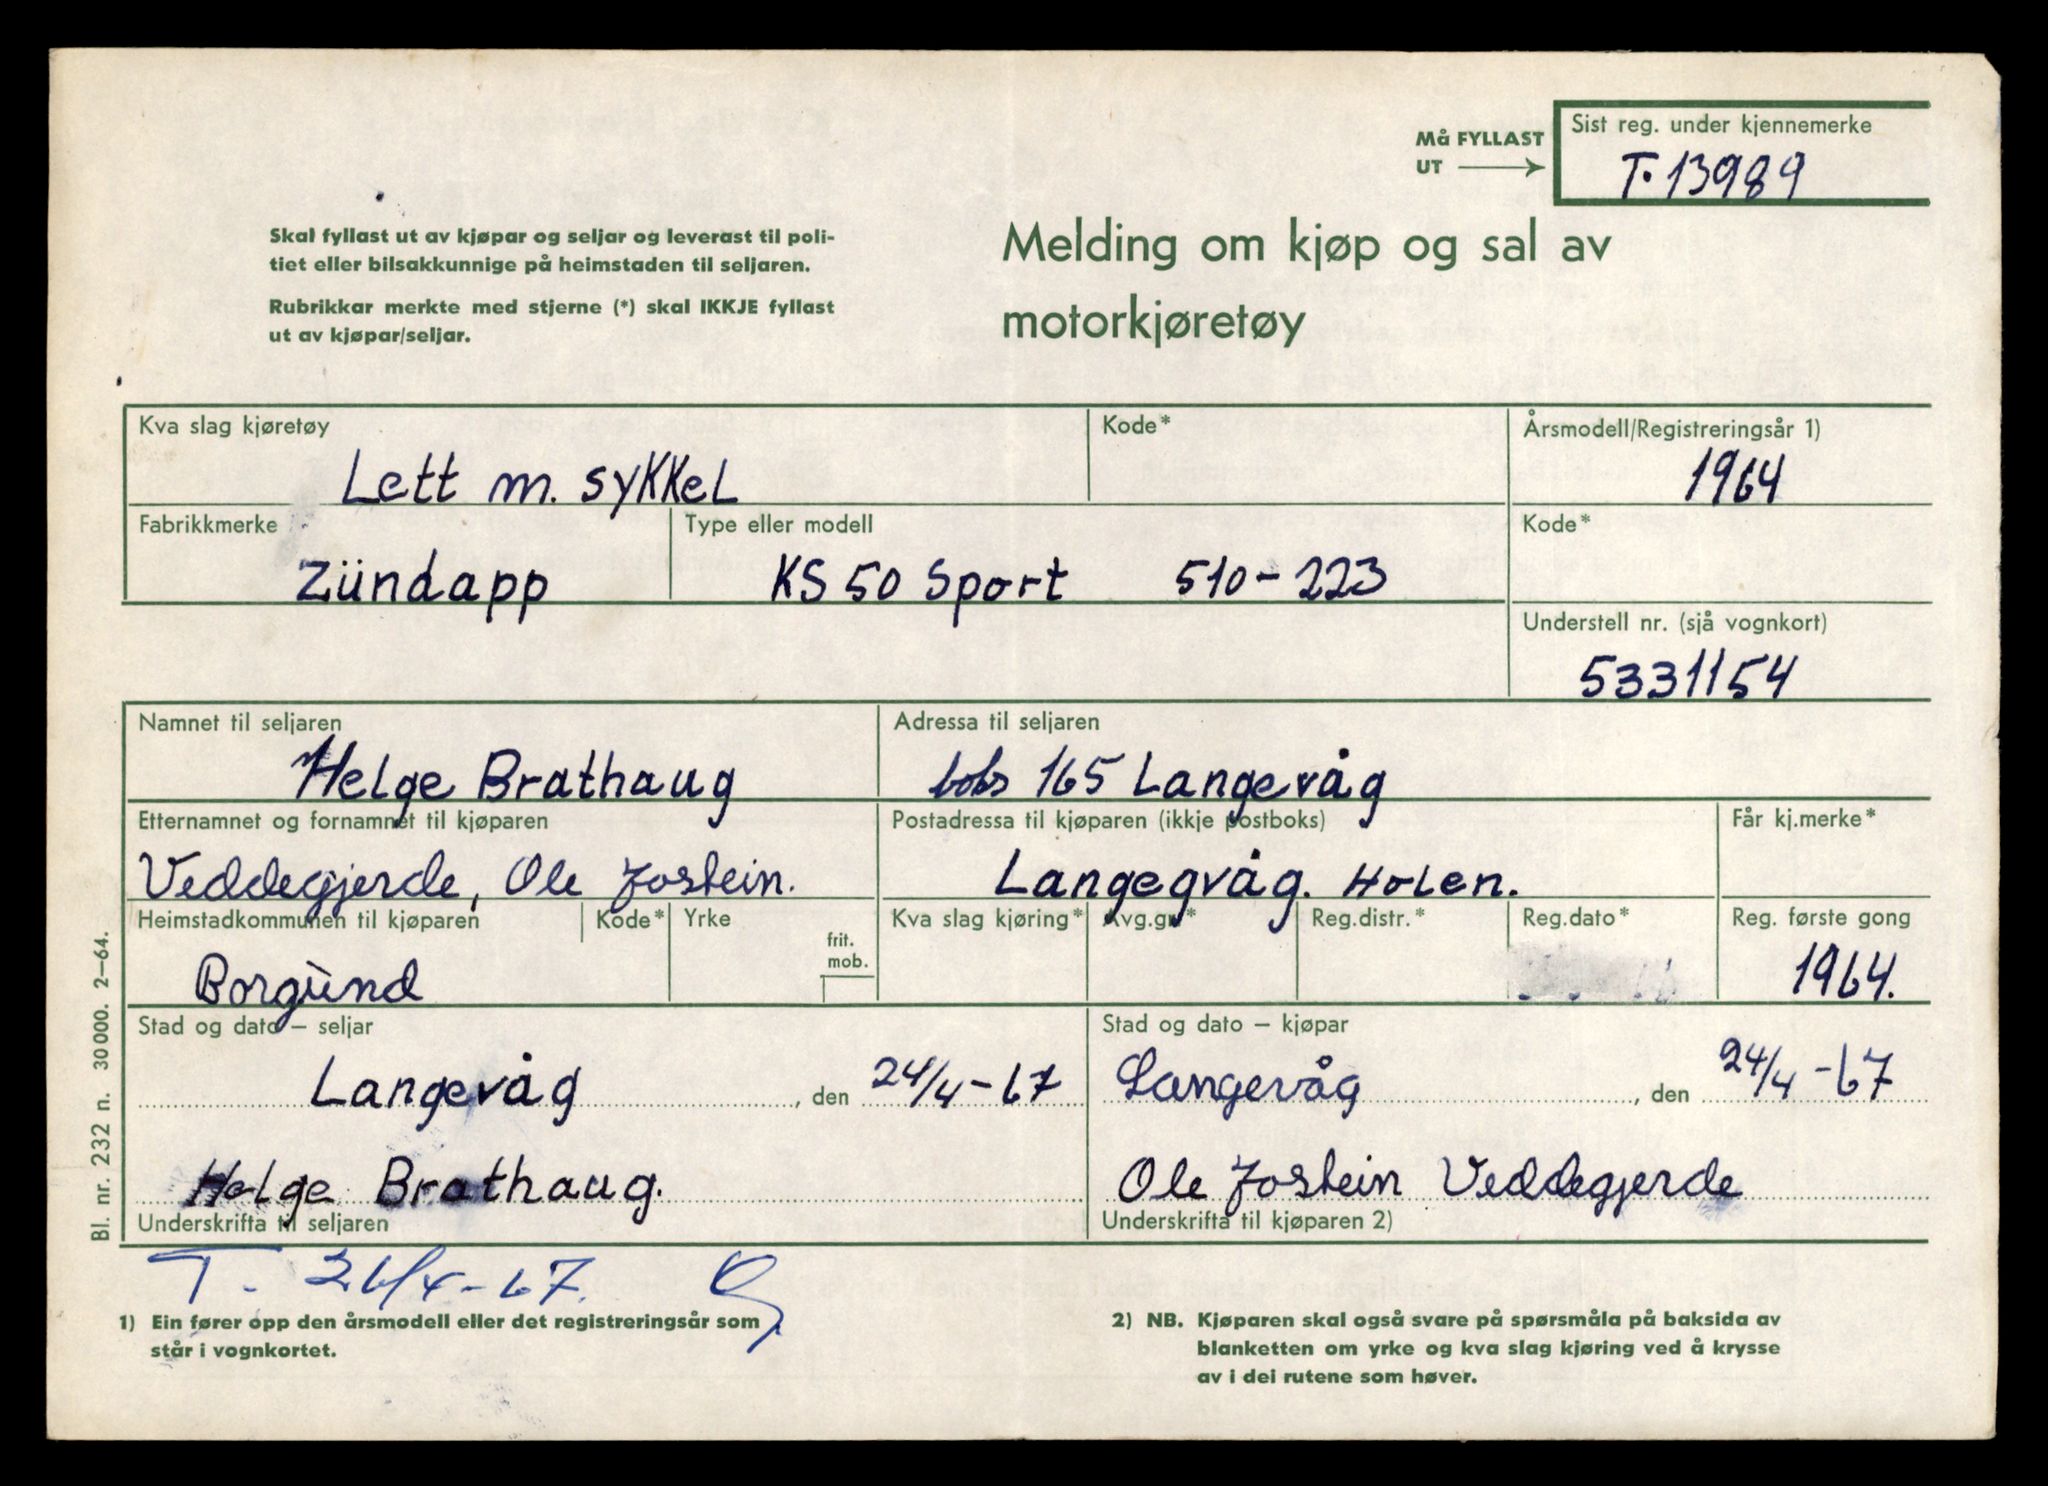 Må FYLLAST
UT
Sist reg. under kjennemerke
T. 13989
Skal fyllast ut av kjøpar og seljar og leverast til poli-
tiet eller bilsakkunnige på heimstaden til seljaren.
Rubrikkar merkte med stjerne (*) skal IKKJE fyllast
ut av kjøpar/seljar.
Melding om kjøp og sal av
motorkjøretøy
Kva slag kjøretøy
Lett m. sykkel
Kode*
Årsmodell/Registreringsår 1)
1964
Fabrikkmerke
Zündapp
Type eller modell
KS 50 Sport 510-223
Kode*
Understell nr. (sjå vognkort)
5331154
Namnet til seljaren
Helge Brathaug
Adressa til seljaren
boks 165 Langevåg
Etternamnet og fornamnet til kjøparen
Veddegjerde, Ole Jostein.
Postadressa til kjøparen (ikkje postboks)
Langegvåg. Holen.
Får kj.merke*
Heimstadkommunen til kjøparen
Borgund
Kode*
Yrke
frit.
mob.
Kva slag kjøring*
Avg.gr.*
Reg.distr.*
Reg.dato*
Reg. første gong
1964.
Stad og dato – seljar
Langevåg, den 24/4-67
Stad og dato – kjøpar
Langevåg, den 24/4-67
Helge Brathaug.
Underskrifta til seljaren
Ole Jostein Veddegjerde
Underskrifta til kjøparen 2)
T. 26/4-67.
1) Ein fører opp den årsmodell eller det registreringsår som
står i vognkortet.
2) NB. Kjøparen skal også svare på spørsmåla på baksida av
blanketten om yrke og kva slag kjøring ved å krysse
av i dei rutene som høver.
Bl. nr. 232 n. 30 000. 2–64.